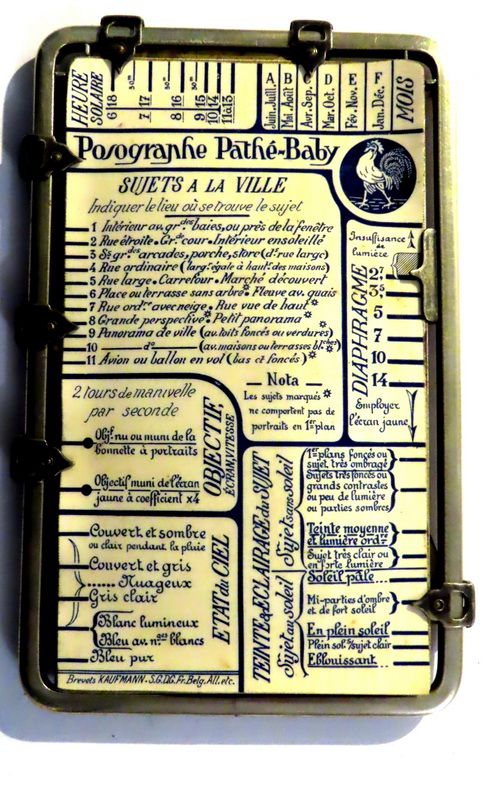 HEURE SOLAIRE
6 7 8 9 10 11à13
18 17 16 15 14
30ᵐ 30ᵐ 30ᵐ
A B C D E F
Juin.Juill. Mai.Août Avr.Sep. Mar.Oct. Fév.Nov. Jan.Déc.
MOIS
Posographe Pathé-Baby
SUJETS A LA VILLE
Indiquer le lieu où se trouve le sujet
1 Intérieur av. grᵈᵉˢ baies, ou près de la fenêtre
2 Rue étroite. Grᵈᵉ cour. Intérieur ensoleillé
3 Sˢ grᵈᵉˢ arcades, porche, store (dˢ rue large)
4 Rue ordinaire (larg. égale à hautʳ des maisons)
5 Rue large. Carrefour. Marché découvert
6 Place ou terrasse sans arbre. Fleuve av. quais
7 Rue ordʳᵉ avec neige. Rue vue de haut
8 Grande perspective. Petit panorama
9 Panorama de ville (av. toits foncés ou verdures)
10 —— dº —— (av. maisons ou terrasses blᶜʰᵉˢ)
11 Avion ou ballon en vol (bas et foncés)
Insuffisance de lumière
DIAPHRAGME
2⁷
3⁵
5
7
10
14
Employer l'écran jaune
— Nota —
Les sujets marqués
ne comportent pas de
portraits en 1ᵉʳ plan
2 tours de manivelle
par seconde
Objᶠ nu ou muni de la
bonnette à portraits
Objectif muni de l'écran
jaune à coefficient x4
OBJECTIF,
ÉCRAN, VITESSE
Couvert et sombre
ou clair pendant la pluie
Couvert et gris
...... Nuageux
Gris clair
Blanc lumineux
Bleu av. nᵍᵉˢ blancs
Bleu pur
ETAT du CIEL
TEINTE & ECLAIRAGE du SUJET
Sujet sans soleil
1ᵉʳˢ plans foncés ou
sujet très ombragé
Sujets très foncés ou
grands contrastes
ou peu de lumière
ou parties sombres
Teinte moyenne
et lumière ordʳᵉ
Sujet très clair ou
en forte lumière
Sujet au soleil
Soleil pâle...
Mi-parties d'ombre
et de fort soleil
En plein soleil
Plein sol. s/sujet clair
Eblouissant...
Brevets KAUFMANN. S.G.D.G. Fr. Belg. All. etc.